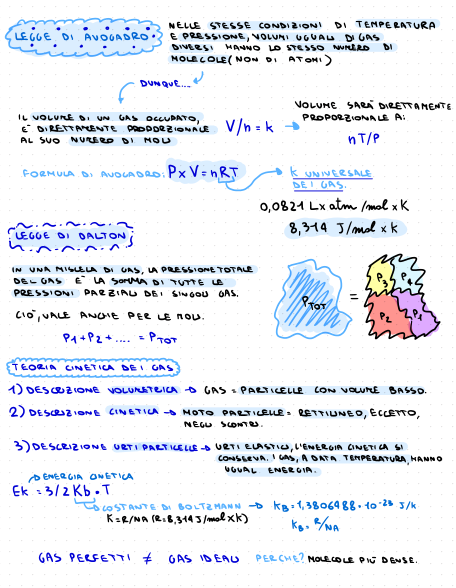 LEGGE DI AVOGADRO
NELLE STESSE CONDIZIONI DI TEMPERATURA
E PRESSIONE, VOLUMI UGUALI DI GAS
DIVERSI HANNO LO STESSO NUMERO DI
MOLECOLE (NON DI ATOMI)
DUNQUE...
IL VOLUME DI UN GAS OCCUPATO,
E' DIRETTAMENTE PROPORZIONALE
AL SUO NUMERO DI MOLI
V/n = k →
VOLUME SARÀ DIRETTAMENTE
PROPORZIONALE A:
nT/P
FORMULA DI AVOGADRO: P x V = nRT
K UNIVERSALE
DEI GAS.
0,0821 L x atm /mol x K
8,314 J/mol x K
LEGGE DI DALTON
IN UNA MISCELA DI GAS, LA PRESSIONE TOTALE
DEL GAS E' LA SOMMA DI TUTTE LE
PRESSIONI PARZIALI DEI SINGOLI GAS.
CIO', VALE ANCHE PER LE MOLI.
P1 + P2 + .... = PTOT
PTOT = P3 P4 P2 P1
TEORIA CINETICA DEI GAS
1) DESCRIZIONE VOLUMETRICA → GAS = PARTICELLE CON VOLUME BASSO.
2) DESCRIZIONE CINETICA → MOTO PARTICELLE = RETTILINEO, ECCETTO,
NEGLI SCONTRI.
3) DESCRIZIONE URTI PARTICELLE → URTI ELASTICI, L'ENERGIA CINETICA SI
CONSERVA. I GAS, A DATA TEMPERATURA, HANNO
UGUAL ENERGIA.
→ ENERGIA CINETICA
Ek = 3/2 Kb • T
→ COSTANTE DI BOLTZMANN → KB = 1,3806488 • 10-23 J/k
K = R/NA (R = 8,314 J/mol x K)
KB = R/NA
GAS PERFETTI ≠ GAS IDEALI PERCHE? MOLECOLE PIÙ DENSE.